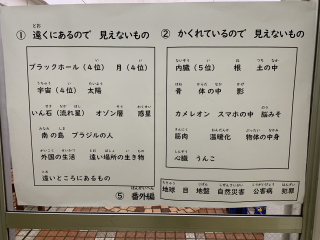 ① 遠くにあるので 見えないもの
ブラックホール（４位） 月（４位）
宇宙（４位） 太陽
いん石（流れ星） オゾン層 惑星
南の島 ブラジルの人
外国の生活 遠い場所の生き物
遠いところにあるもの
② かくれているので 見えないもの
内臓（５位） 根 土の中
骨 体の中 影
カメレオン スマホの中 脳みそ
筋肉 温暖化 物体の中身
心臓 うんこ
⑤ 番外編
地球 目 地盤 自然災害 公害病 犯罪